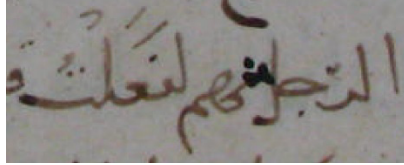 الرجل منهم لفَعَلتُ